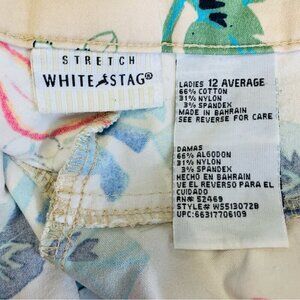 STRETCH
WHITE STAG®
LADIES 12 AVERAGE
66% COTTON
31% NYLON
3% SPANDEX
MADE IN BAHRAIN
SEE REVERSE FOR CARE
DAMAS
66% ALGODON
31% NYLON
3% SPANDEX
HECHO EN BAHRAIN
VE EL REVERSO PARA EL
CUIDADO
RN# 52469
STYLE# WS513072B
UPC: 66317706109